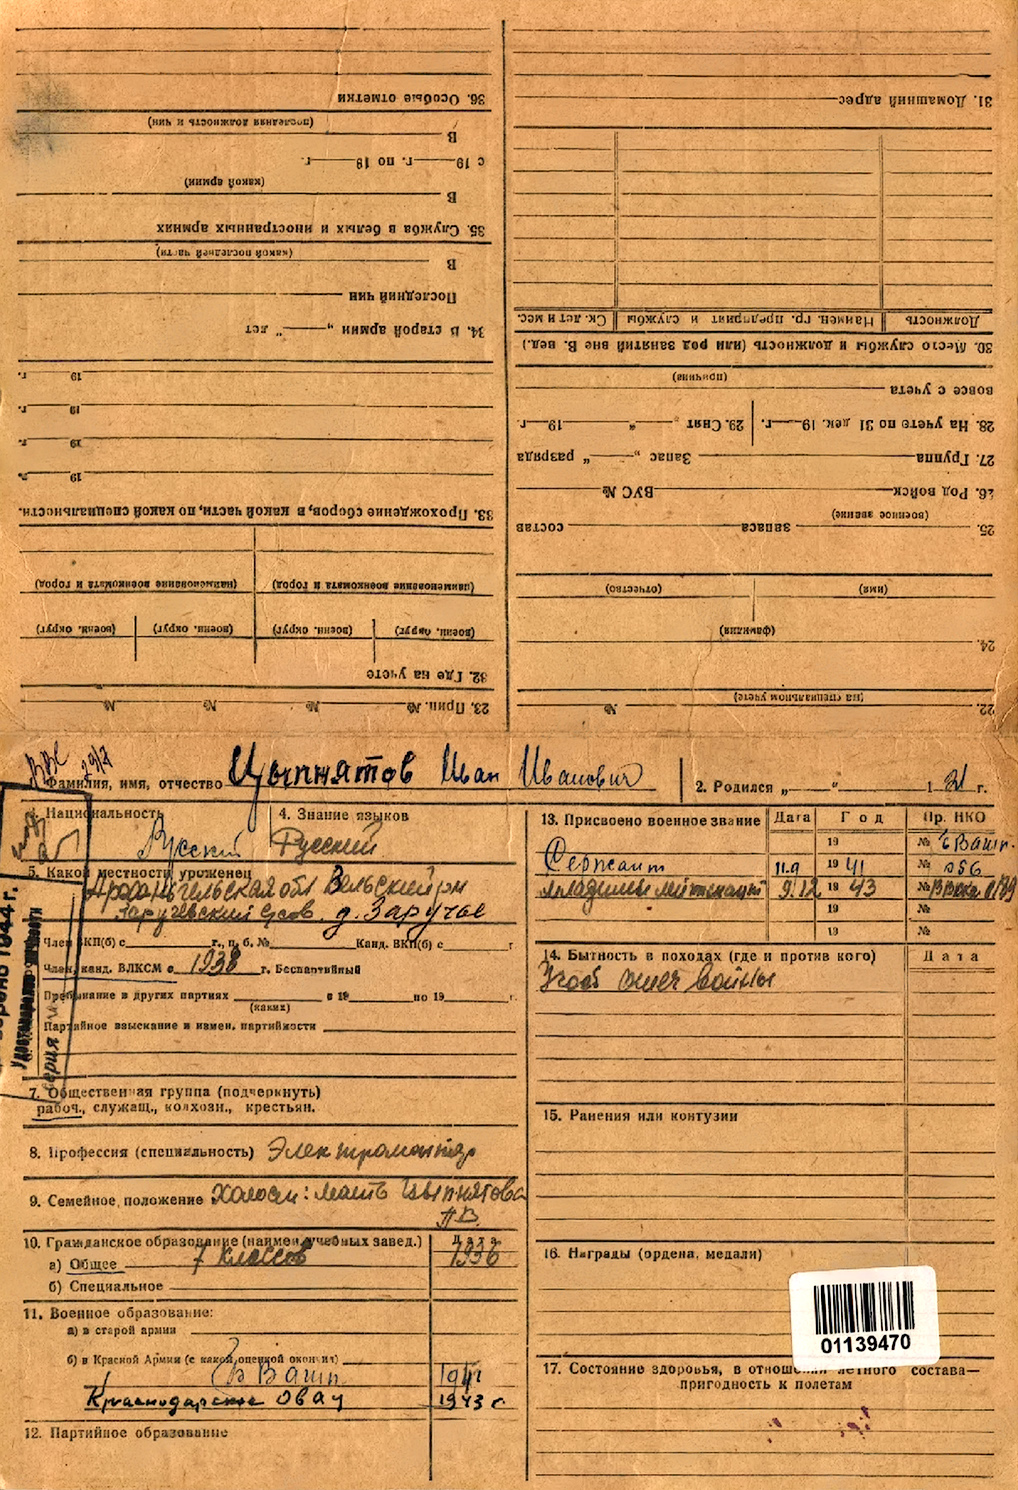 36. Особые отметки
(последняя должность и чин)
В
с 19 г. по 19 г.
(какой армии)
В
35. Служба в белых и иностранных армиях
(какой последней части)
В
Последний чин
34. В старой армии „ “ лет
19 г.
19 г.
19 г.
19 г.
33. Прохождение сборов, в какой части, по какой специальности.
(наименование военкомата и город) (наименование военкомата и город)
(воен. округ) (воен. округ) (воен. округ) (воен. округ)
32. Где на учете
23. Прип. № № № №
31. Домашний адрес
Должность Наимен. гр. предприят и службы Ск. лет и мес.
30. Место службы и должность (или род занятий вне В. вед.)
(причина)
вовсе с учета
28. На учете по 31 дек. 19 г. 29. Снят „ “ 19 г.
27. Группа Запас „ “ разряда
26. Род войск ВУС №
(военное звание)
25. запаса состав
(имя) (отчество)
(фамилия)
24.
(на специальном учете)
22. №
ВВС 29/2
Фамилия, имя, отчество Цыпнятов Иван Иванович
2. Родился „ “ 1 21 г.
Национальность Русский
4. Знание языков Русский
5. Какой местности уроженец
Архангельская обл Вельский рн
Заручевский с/сов. д. Заручье
Член ВКП(б) с г., п. б. № Канд. ВКП(б) с г
Член, канд. ВЛКСМ с 1938 г. Беспартийный
Пребывание в других партиях в 19 по 19 г.
(каких)
Партийное взыскание и измен. партийности
7. Общественная группа (подчеркнуть)
рабоч., служащ., колхозн., крестьян.
8. Профессия (специальность) Электромонтер
9. Семейное положение Холост: мать Цыпнятова
П.В.
10. Гражданское образование (наимен. учебных завед.) Дата
а) Общее 7 классов 1936
б) Специальное
11. Военное образование:
а) в старой армии
б) в Красной Армии (с какой оценкой окончил)
Вашп 1941
Краснодарское ОВАУ 1943 г
12. Партийное образование
13. Присвоено военное звание Дата Год Пр. НКО
19 № Вашп.
Сержант 11.9 19 41 № 056
младший лейтенант 9.12 19 43 №
19 №
19 №
14. Бытность в походах (где и против кого) Дата
войны
15. Ранения или контузии
16. Награды (ордена, медали)
01139470
17. Состояние здоровья, в отношении летного состава—
пригодность к полетам
1944 г.
Удостоверение личности
серия